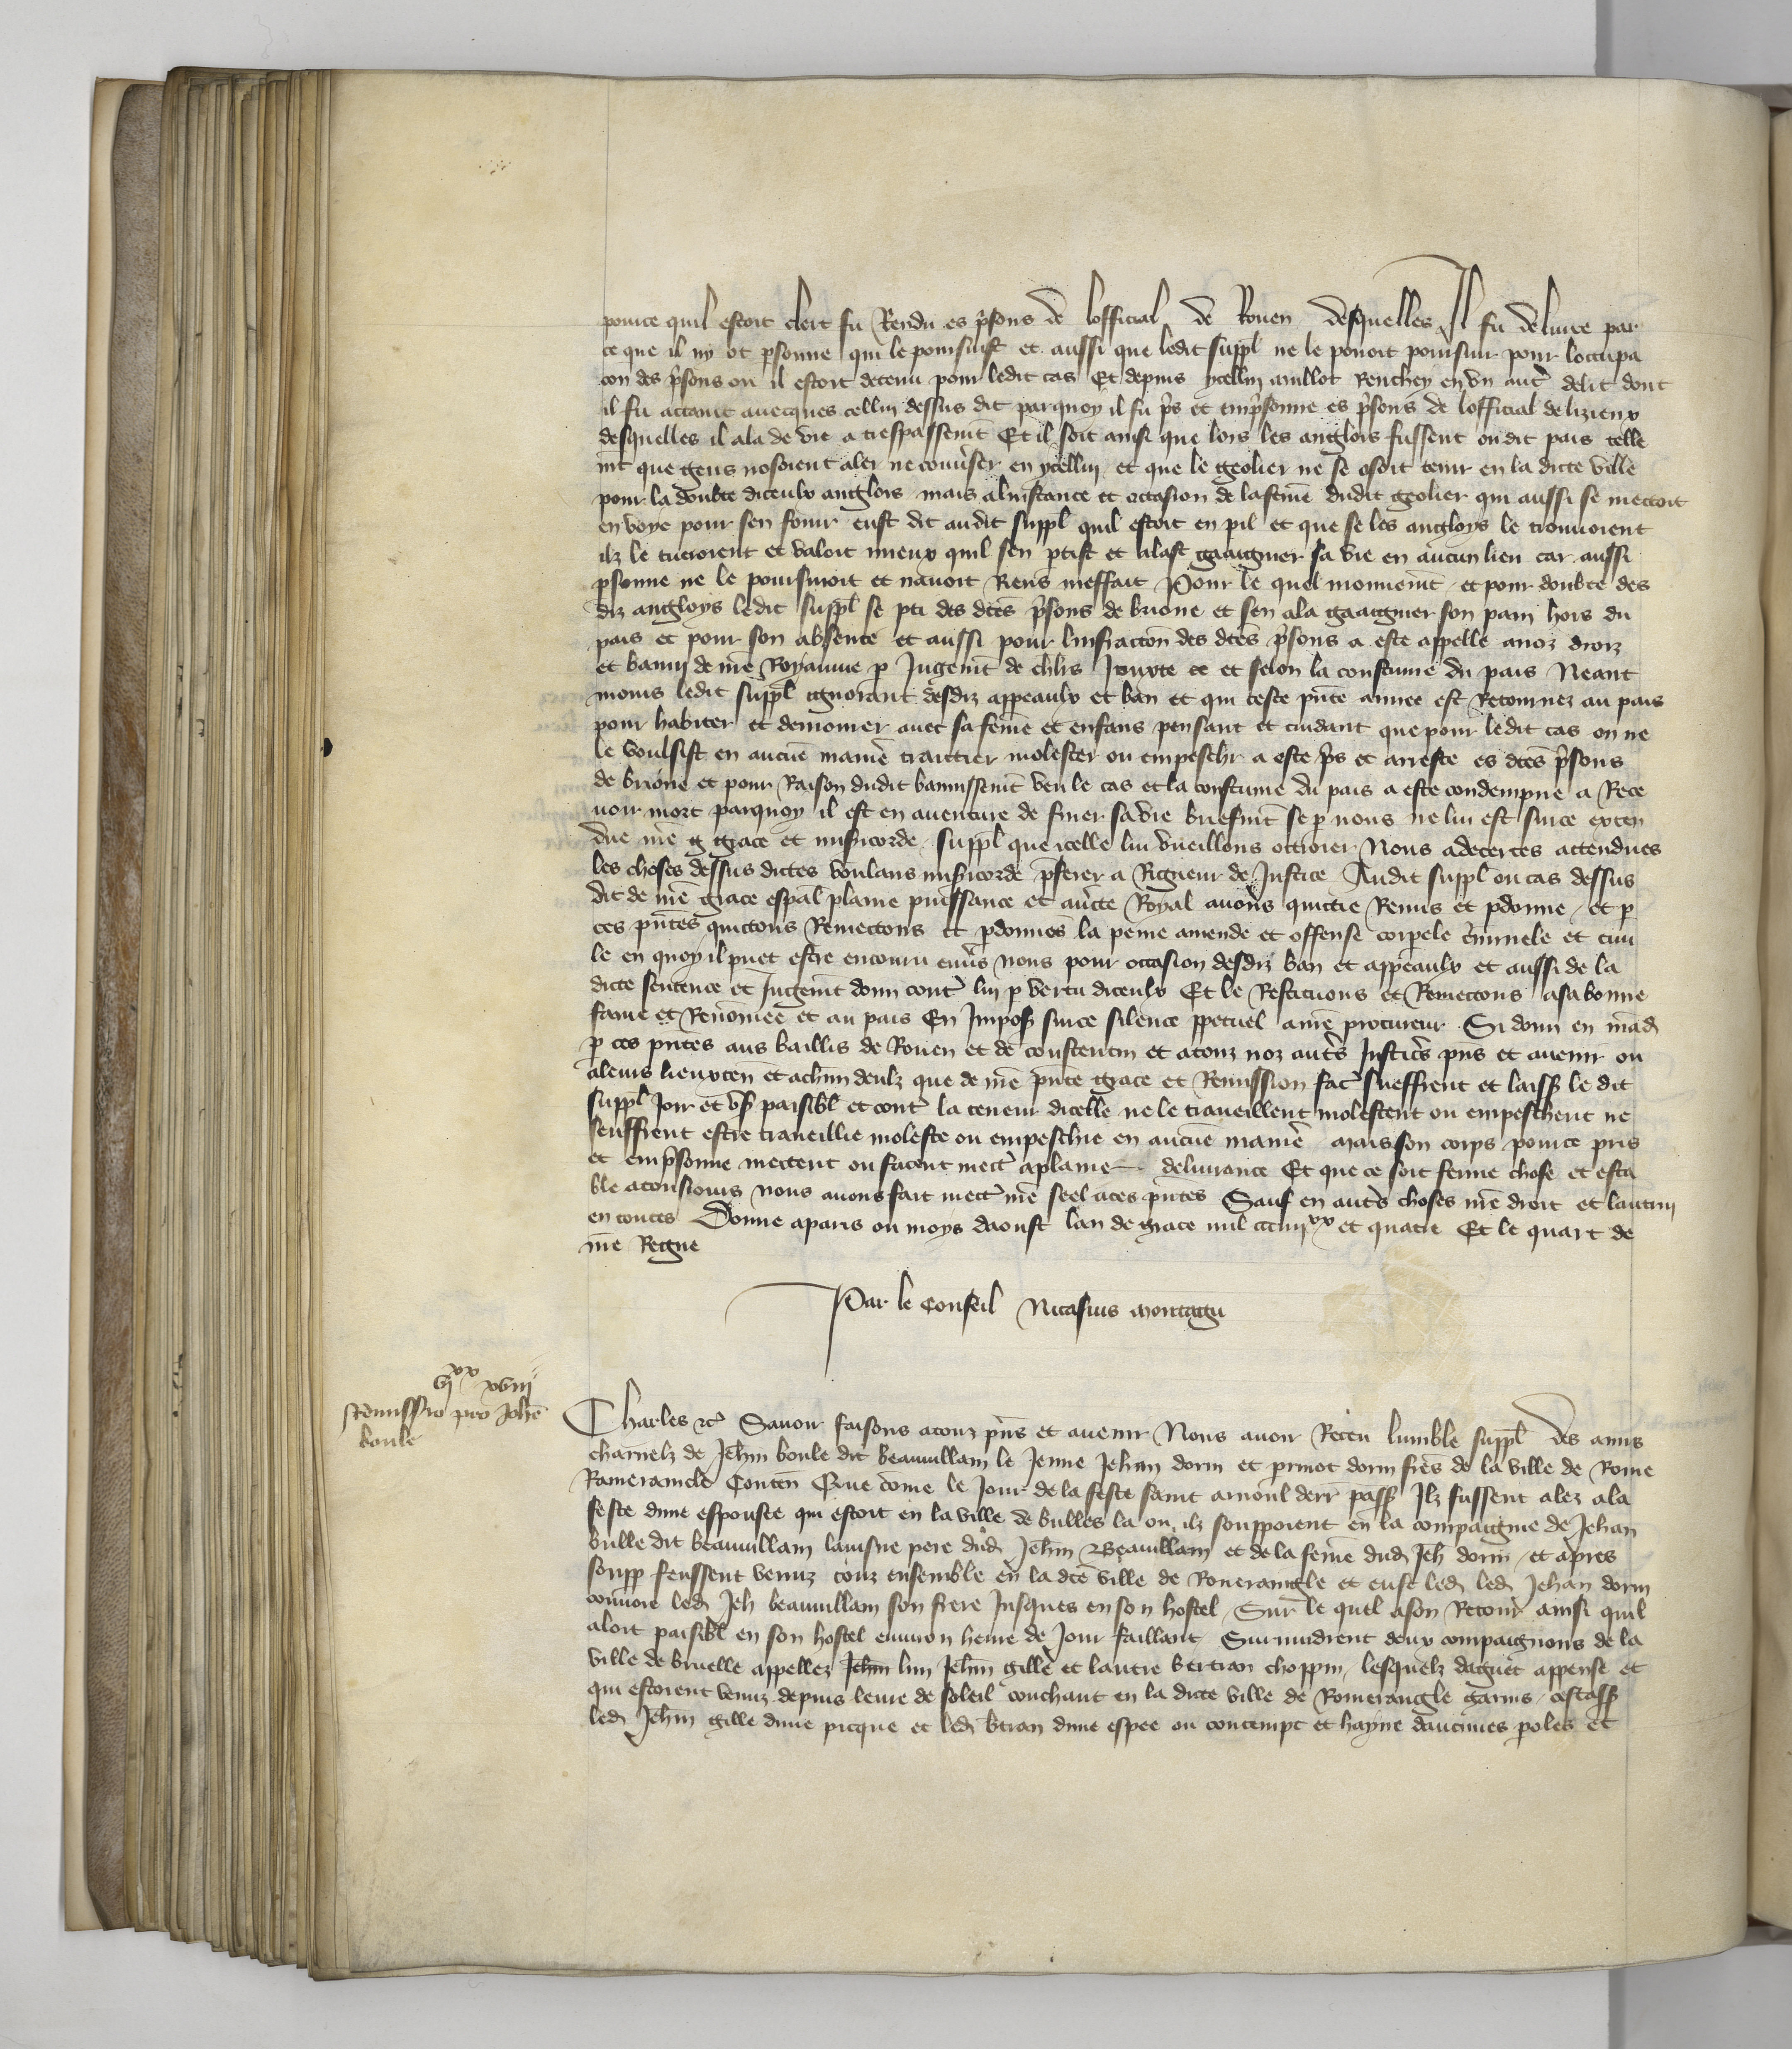 pource quil estoit clerc fu Rendu es p̄sons de lofficial de Rouen desquelles Il fu deliure par
ce que il ny ot psonne qui le poursuist et aussi que ledit suppl ne le pouoit poursuir pour loccupa
con des p̄sons ou il estoit detenu pour ledit cas Et depuis ycellui Renchey en vn aut̄ delit dont
il fu attaint auecques cellui dessus dit parquoy il fu p̄s et emp̄sonne es p̄sons de lofficial de lizieux
desquelles il ala de vie a trespassem̄t Et il soit ainsi que lors les anglois fussent oudit pais telle
m̄t que gens nosoient aler ne conūser en ycellui et que le geolier ne se osoit tenir en la dicte ville
pour la doubte diceulx anglois mais alinstance et occasion de la fem̄e dudit geolier qui aussi se mettoit
en voye pour sen fouir eust dit audit suppl quil estoit en pil et que se les angloys le trouuoient
ilz le tueroient et valoit mieux quil sen ptist et alast gaaigner sa vie en aucun lieu car aussi
psonne ne le poursuioit et nauoit Riens meffait Pour le quel mouuem̄t et pour doubte des
diz angloys ledit suppl se pti des dc̄es p̄sons de brione et sen ala gaaigner son pain hors du
pais et pour son absence et aussi pour linfraccon des dc̄es p̄sons a este appelle a noz droiz
et bany de nr̄e Royaume p Jugem̄t de chl̄rs Jouxte ce et selon la coustume du pais Neant
moins ledit suppl ignorant desdiz appeaulx et ban et qui ceste pn̄te annee est Retournez au pais
pour habiter et demourer auec sa fem̄e et enfans pensant et cuidant que pour ledit cas on ne
le voulsist en aucūe manie᷑ traittier molester ou empeschr a este p̄s et arreste es dc̄es p̄sons
de brione et pour Raison dudit bannissem̄t veu le cas et la coustume du pais a este condempne a Rece
uoir mort parquoy il est en auenture de finer sa vie briefm̄t se p nous ne lui est surce exten
due nr̄e grace et mis̄icorde suppl que icelle lui vueillons ottroier Nous adecertes attendues
les choses dessus dictes voulans mis̄icorde p̄ferer a Rigueur de Justice Audit suppl ou cas dessus
dit de nr̄e grace esp̄al plaine puissance et auc̄te Royal auons quittie Remis et pdonne et p
ces pn̄tes quittons Remettons et pdonnōs la peine amende et offense corpele c̄iminele et ciui
le en quoy il puet estre encouru enūs nous pour occasion desdiz ban et appeaulx et aussi de la
dicte sentence et Jugem̄t donn cont̄ lui p vertu diceulx Et le Restituons et Remettons a sa bonne
fame et Renōmee et au pais En Imposs surce silence ppetuel a nr̄e procureur Si donn en mād
p ces pn̄tes aus baillis de Rouen et de coustentin et a touz noz aut̄s Justic̄s pn̄s et auenir ou
a leurs lieuxten et a chūn deulz que de nr̄e pn̄te grace et Remission fac̄ sueffrent et laiss le dit
suppl Joir et vs̄ paisibl et cont̄ la teneur dicelle ne le traueillent molestent ou empeschent ne
seuffrent estre traueillie moleste ou empeschie en aucūe manie᷑ mais son corps pource pris
et emp̄sonne mettent ou facent mett̄ a plaine deliurance Et que ce soit ferme chose et esta
ble a tousiours nous auons fait mett̄ nr̄e seel a ces pn̄tes Sauf en aut̄s choses nr̄e droit et lautrui
en toutes Donne a paris ou moys daoust lan de grace mil ccciiiixx et quatre Et le quart de
nr̄e Regne
Par le conseil Nicasius montagu
vixx xviii
Remissio pro Johē
boule
Charles etc̄ Sauoir faisons a touz pn̄s et auenir Nous auoir Receu lumble suppl des amis
charnelz de Jeh̄n boule dit beauuillain le Jeune Jehan dorin et prinot dorin fre᷑s de la ville de Rome
Ramerancle Conten Que cōme le Jour de la feste saint arnoul derr pass Ilz fussent alez a la
feste dune espousee qui estoit en la ville de bulles la ou ilz soupoient en la compaignie de Jehan
bulle dit beauuillain lainsne pere dud Jeh̄n Beauuillain et de la fem̄e dud Jeh dorin et apres
soupp feussent venuz touz ensemble en la dc̄e ville de Romerangle et eust led led Jehan dorin
conuoie led Jeh beauuillain son frere Jusques en son hostel Sur le quel a son Retour ainsi quil
aloit paisibl en son hostel enuiron heure de Jour faillant Suruindrent deux compaignons de la
ville de bruelle appellez Jeh̄n lun Jeh̄n gille et lautre bertran choppin lesquelz daguet appense et
qui estoient venuz depuis leure de soleil couchant en la dicte ville de Romerangle garnis cestass
led Jeh̄n gille dune picque et led btran dune espee ou contempt et hayne daucunes poles et